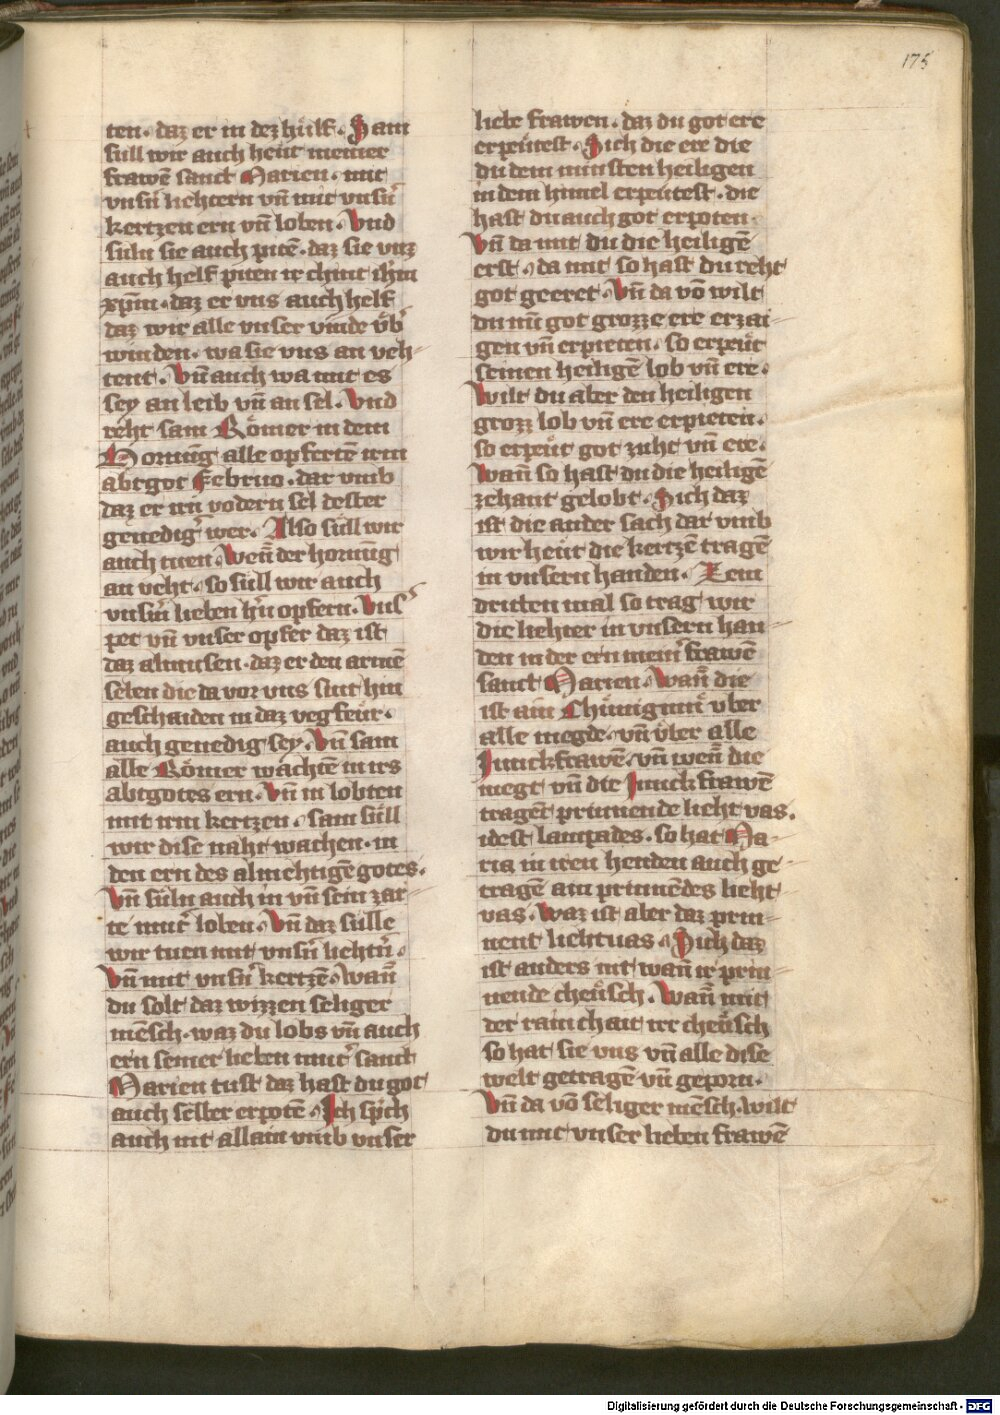 175
ten. daz er in dez hülf. Sam
süll wir auch heut meiner
frawē sanct Marien. mit
vnsn̄ liehtern vn̄ mit vnsn̄
kertzen ern vn̄ loben. Vnd
süln sie auch pitē. daz sie vnz
auch helf piten ir chint ih̄m
xp̄m. daz er vns auch helf
daz wir alle vnser vinde vb̓
winden. wa sie vns an veh-
tent. Vn̄ auch wa mit es
sey an leib vn̄ an sel. Vnd
reht sam Römer in dem
Hornūg alle opfertē irm
abtgot Februo. dar vmb
daz er irn vodern sel dester
genedig̓ wer. Also süll wir
auch tuen. Wen̄ der hornūg
an veht. so süll wir auch
vnsm̄ lieben h̓n opfern. Vns̓
pet vn̄ vnser opfer daz ist
daz almusen. daz er den armē
selen die da vor vns sint hin
geschaiden in daz vegfeür.
auch genedig sey. Vn̄ sam
alle Römer wachtē in irs
abtgotes ern. Vn̄ in lobten
mit irm kertzen. sam süll
wir dise naht wachen. in
den ern des almehtigē gotes.
Vn̄ süln auch in vn̄ sein zar-
te mut̓ loben. Vn̄ daz sülle
wir tuen mit vnsn̄ liehtn̄.
Vn̄ mit vnsn̄ kertzē. Wan̄
du solt daz wizzen seliger
mēsch. waz du lobs vn̄ auch
ern seiner lieben mut̓ sanct
Marien tust daz hast du got
auch selber erpotē. Ich sp̓ch
auch nit allain vmb vnser
liebe frawen. daz du got ere
erpeütest. Sich die ere die
du dem minsten heiligen
in dem himel erpeutest. die
hast du auch got erpoten.
Vn̄ da mit du die heiligē
erst. da mit so hast du reht
got geeret. Vn̄ da vō wilt
du nū got grozze ere erzai-
gen vn̄ erpieten. so erpeüt
seinen heiligē lob vn̄ ere.
Wilt du aber den heiligen
grozz lob vn̄ ere erpieten.
so erpeüt got zuht vn̄ ere.
Wan̄ so hast du die heiligē
zehant gelobt. Sich daz
ist die ander sach dar vmb
wir heüt die kertzē tragē
in vnsern handen. Zem
dritten mal so trag wir
die liehter in vnsern han-
den in der ern meinr̄ frawē
sanct Marien. Wan̄ die
ist ain Chünigin̄ vber
alle megde. vn̄ vber alle
Junckfrawē. vn̄ wen̄ die
megt vn̄ die Junckfrawē
tragēt prinnende lieht vas.
idest lampades. so hat Ma-
ria in iren henden auch ge-
tragē ain prinnēdes lieht
vas. Waz ist aber daz prin-
nent liehtuas. Sich daz
ist anders nit wan̄ ir prin-
nende cheüsch. Wan̄ mit
der rainchait irr cheüsch
so hat sie vns vn̄ alle dise
welt getragē vn̄ geporn.
Vn̄ da vō seliger mēsch. wilt
du mit vnser lieben frawē
Digitalisierung gefördert durch die Deutsche Forschungsgemeinschaft - DFG